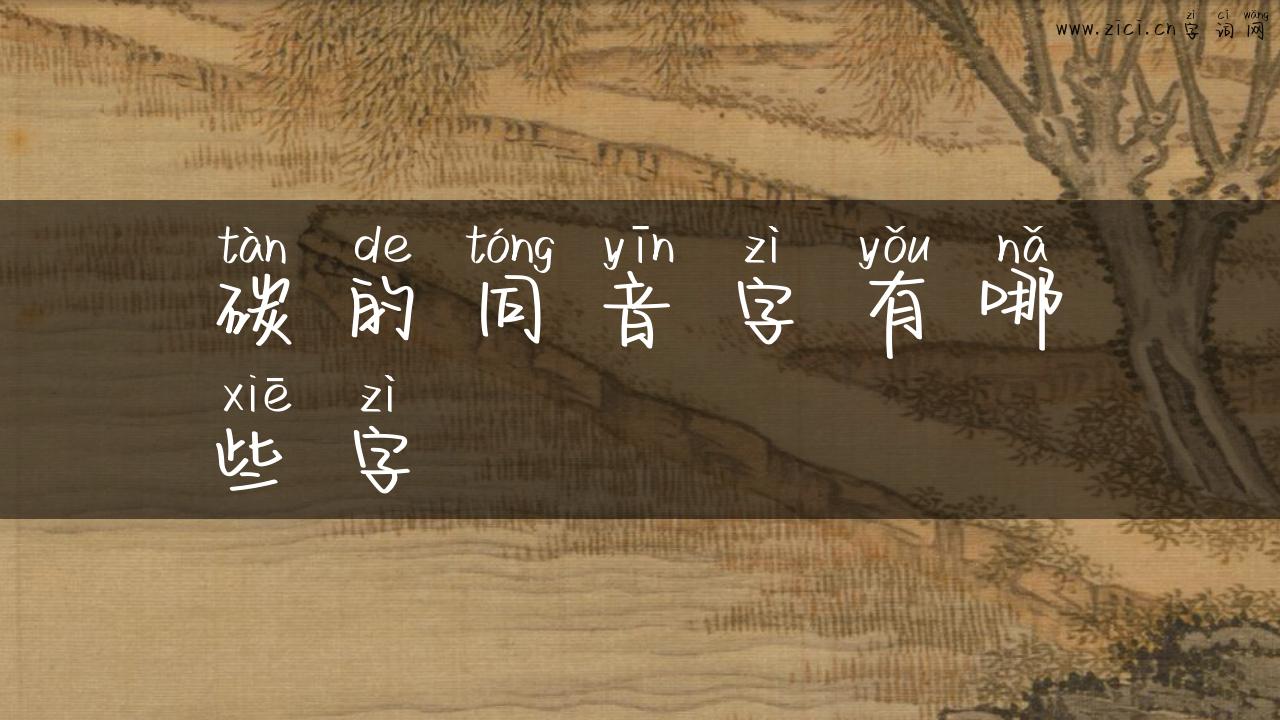 zì cí wǎng
www.zici.cn字词网
tàn de tóng yīn zì yǒu nǎ
碳的同音字有哪
xiē zì
些字